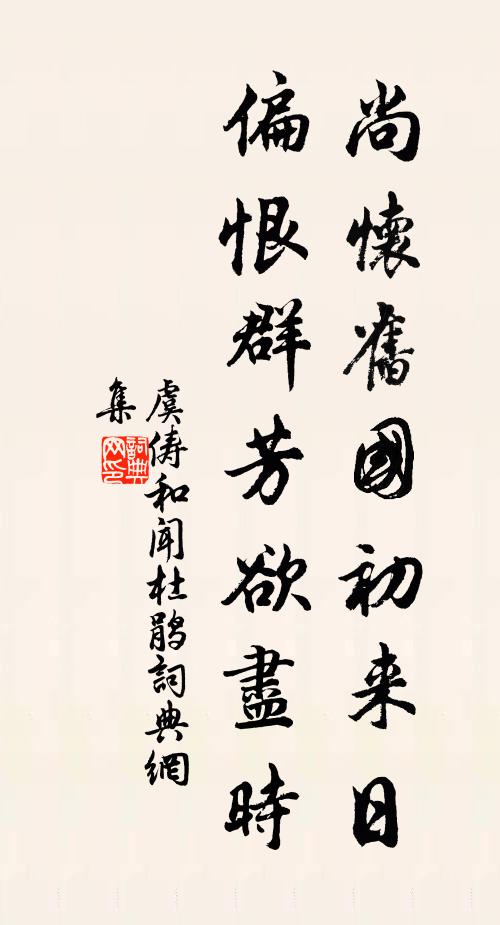 尚懷舊國初来日
偏恨群芳欲盡時
虞俦和闻杜鹃詞典網
集
詞典
网印